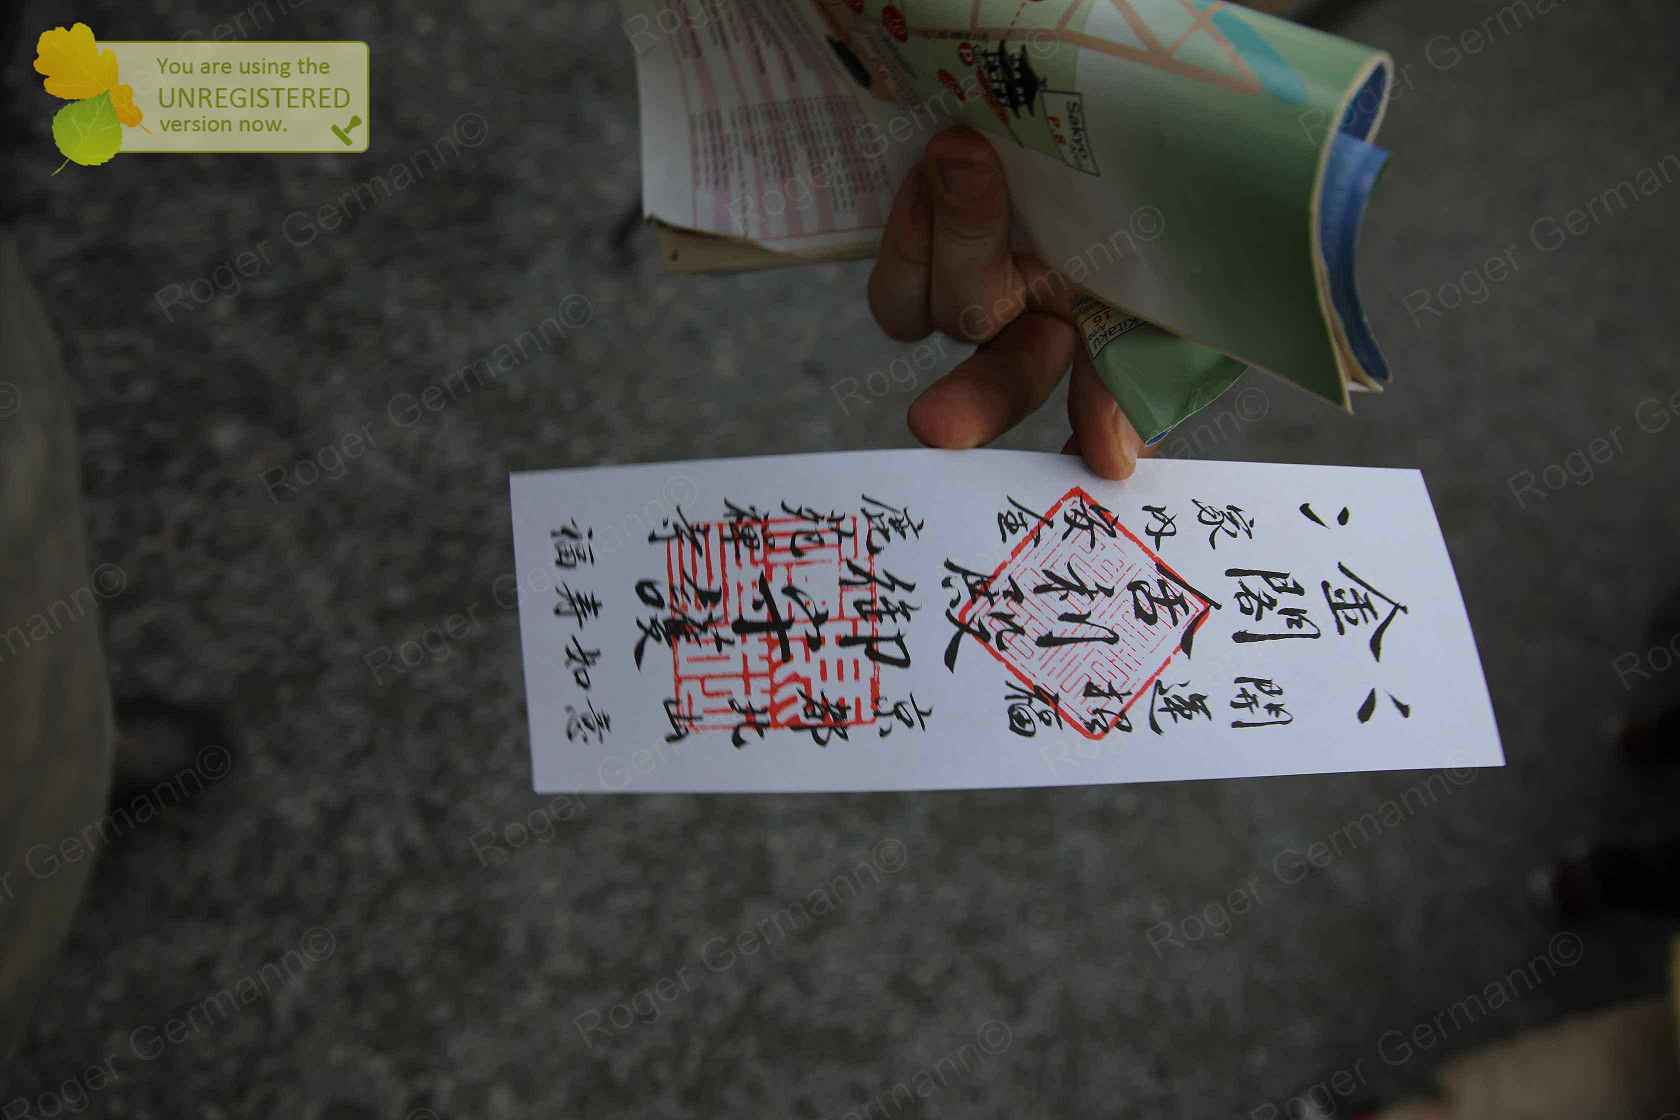 You are using the
UNREGISTERED
version now.
P.8
Kitaku
16
開運招福
京都北山
金閣舎利殿御守護
家内安全
鹿苑禅寺
福壽如意
Roger Germann©